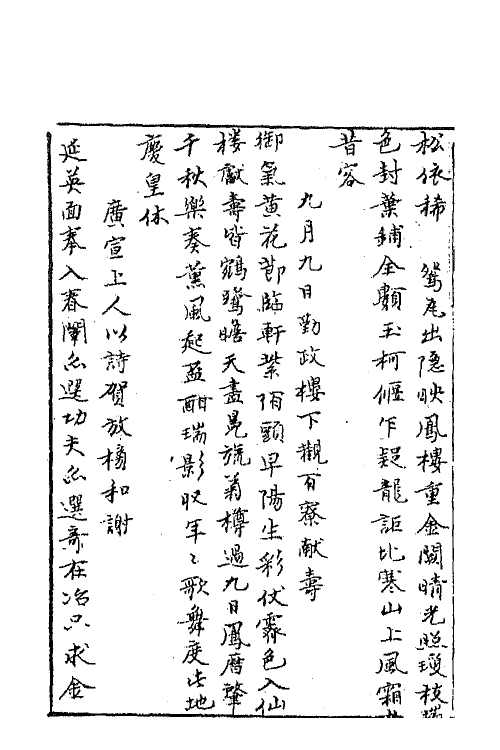 松依稀　鴛瓦出隱映鳳樓重金闕晴光照瓊枝瑞
色封葉鋪全類玉柯偃乍疑龍詎比寒山上風霜
昔容
九月九日勤政樓下觀百寮献壽
御氣黄花節臨軒紫陌頭早陽生彩仗霽色入仙
樓獻壽皆鵷鷺瞻天盡冕旒菊樽過九日鳳曆肇
千秋樂奏薫風起盃酣瑞影收年〻歌舞度此地
慶皇休
廣宣上人以詩賀放榜和謝
延英面奉入春闈亦選功夫亦選竒在冶只求金